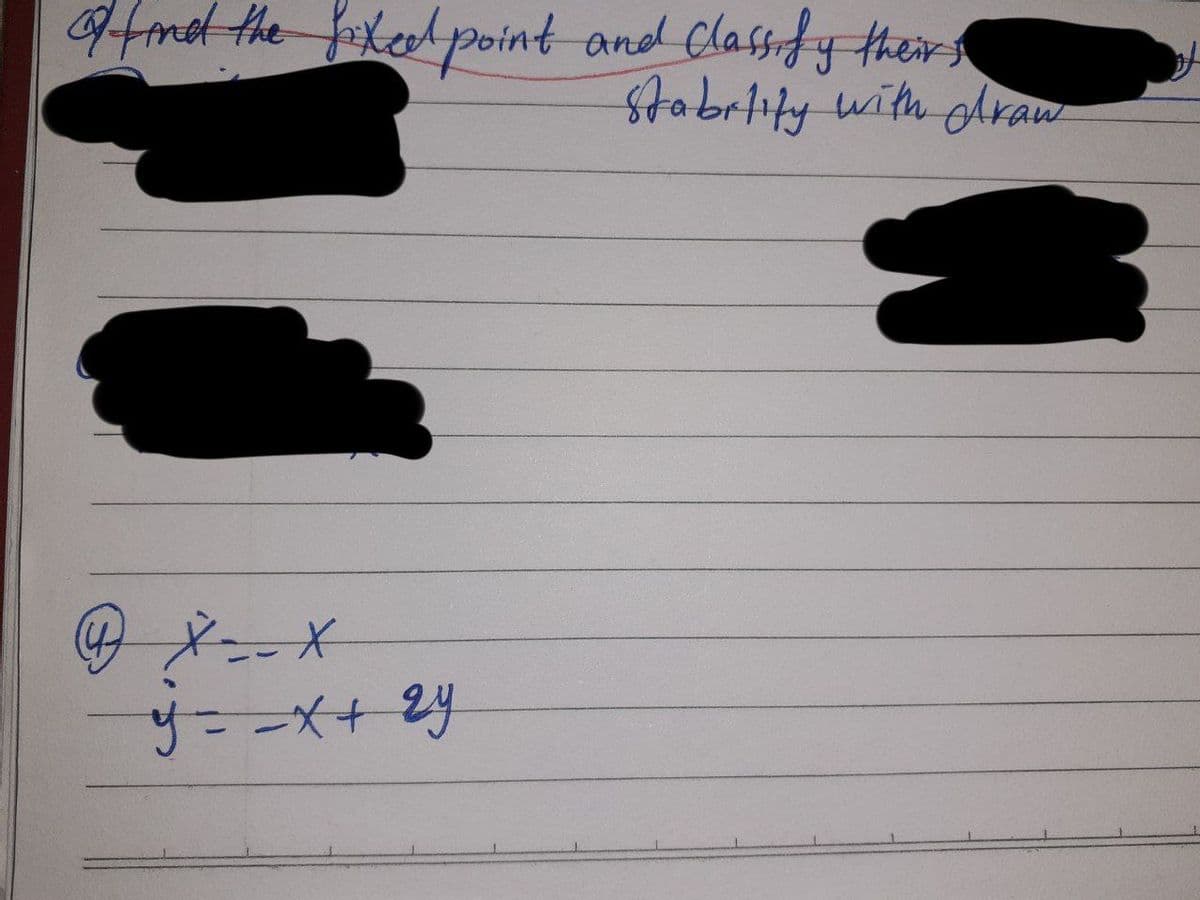 Q find the fixed point and classify their
stability with draw
④ ẋ = - x
ẏ = -x + 2y